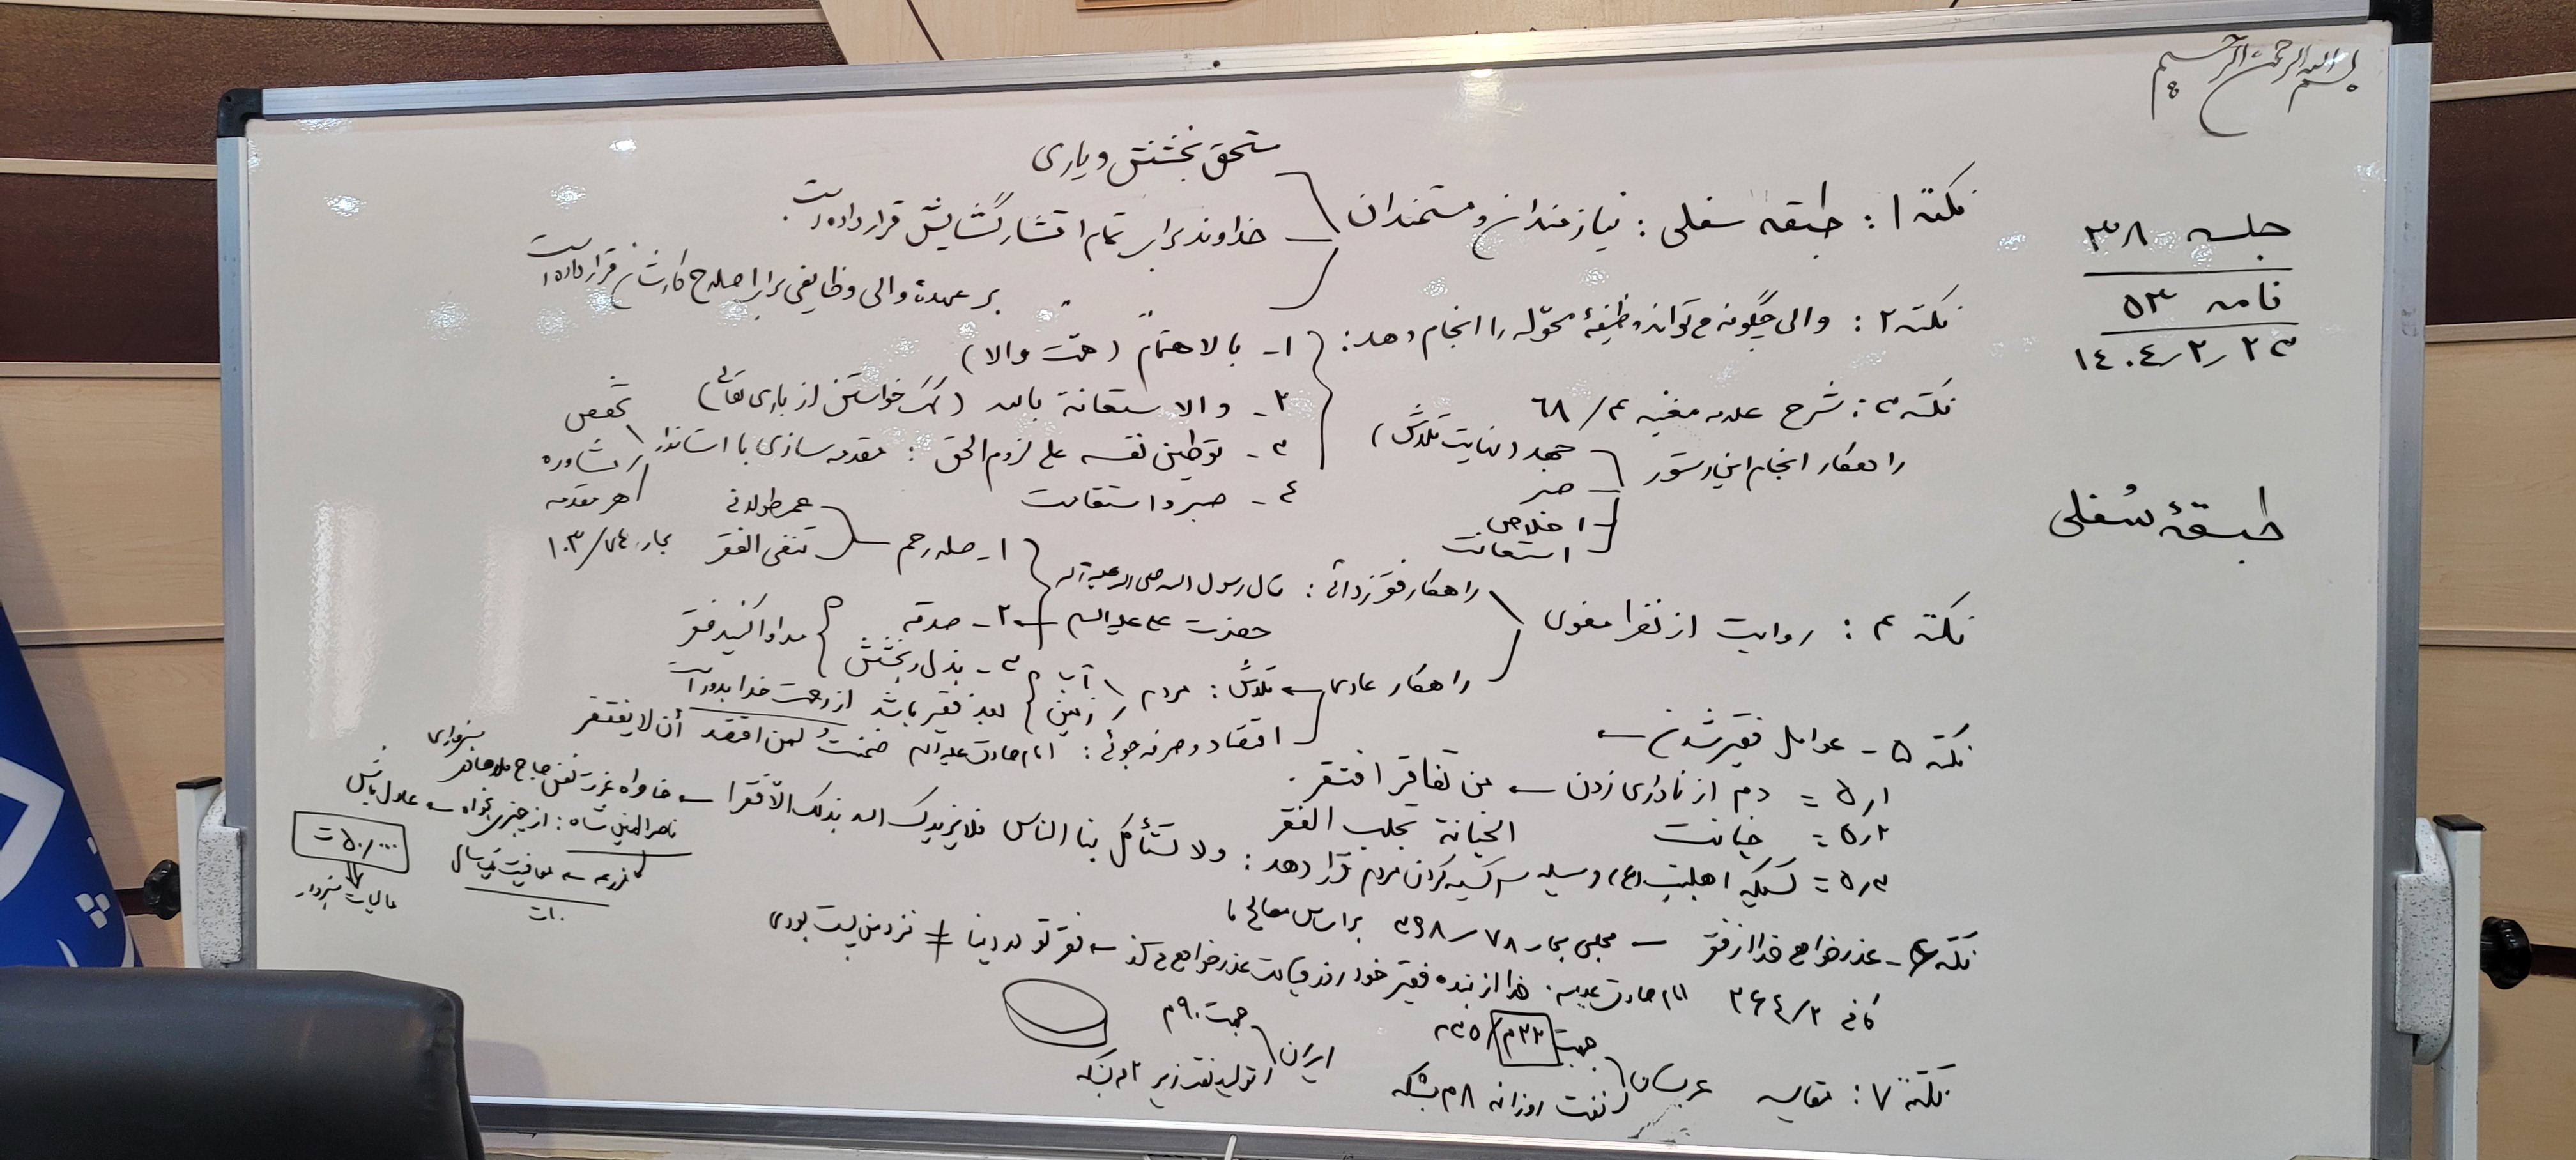 بسم الله الرحمن الرحیم
جلسه ۳۸
نامه ۵۳
۱۴۰۴/۲/۲۳
طبقهٔ سُفلی
نکته ۱: طبقه سفلی: نیازمندان و مستمندان
مستحق بخشش و یاری
خداوند برای تمام اقشار گشایش قرار داده است.
بر عهدهٔ والی وظایفی برای اصلاح کارشان قرار داده است
نکته ۲: والی چگونه می تواند وظیفهٔ محوّله را انجام دهد:
۱- بالاهتمام (همت والا)
۲- والاستعانة بالله (کمک خواستن از باری تعالی)
۳- توطین نفسه علی لزوم الحق: مقدمه سازی با استاندار
تخصص
مشاوره
هر مقدمه
۴- صبر و استقامت
نکته ۳: شرح علامه مغنیه ۴/۶۸
راهکار انجام این دستور
جهد (نهایت تلاش)
صبر
اخلاص
استعانت
نکته ۴: روایت از نفرا مغوی
راهکار فقرزدائی: قال رسول الله صلی الله علیه و آله
حضرت علی علیه السلام
۱- صله رحم
عمر طولانی
تنفی الفقر بحار ۷۴/۱۰۳
۲- صدقه
۳- بذل و بخشش
مداوا کنید فقر
راهکار عادی ← تلاش: مردم آب زمین بعد فقیر باشد از رحمت خدا بدور است
اقتصاد و صرفه جوئی: امام صادق علیه السلام ضمنتُ لمن اقتصد أن لا یفتقر
نکته ۵- عوامل فقیر شدن ←
۵/۱ = دم از نداری زدن ← من تفاقر افتقر.
۵/۲ = خیانت الخیانة تجلب الفقر
۵/۳ = کسیکه اهلبیت (ع) وسیله سرکیسه کردن مردم قرار دهد: ولا تستأکل بنا الناس فلا یزیدک الله بذلک الا فقرا ← عزت نفس حاج ملا هادی سبزواری
ناصرالدین شاه: از چیزی بخواه ← عادل باش
مزرعه ← معافیت یک سال
۵۰/۰۰۰ ت
مالیات سبزوار
نکته ۶- عذرخواهی خدا از فقر ← مجلسی بحار ۷۸/۳۹۸ براساس مصالح ما
کافی ۲/۲۶۴ امام صادق علیه السلام: خدا از بنده فقیر خود روز قیامت عذرخواهی می کند ← فقر تو در دنیا ≠ نزد من پست بودی
نکته ۷: مقایسه
عربستان
جمعیت ۳۲م / ۳۵
نفت روزانه ۸م بشکه
ایران
جمعیت ۹۰م
تولید نفت زیر ۲م بشکه